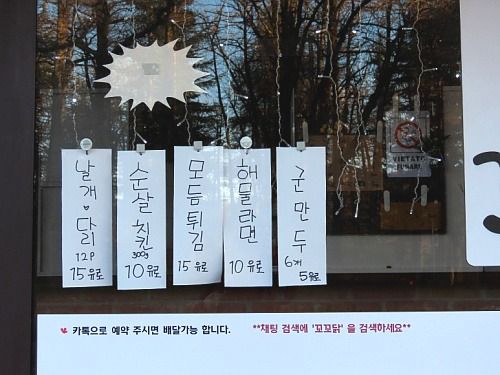 날개♥다리
12P
15유로
순살 치킨
300g
10유로
모듬튀김
15유로
해물라맨
10유로
군만두
6개
5유로
VIETATO
FUMARE
카톡으로 예약 주시면 배달가능 합니다. **채팅 검색에 '꼬꼬닭' 을 검색하세요**